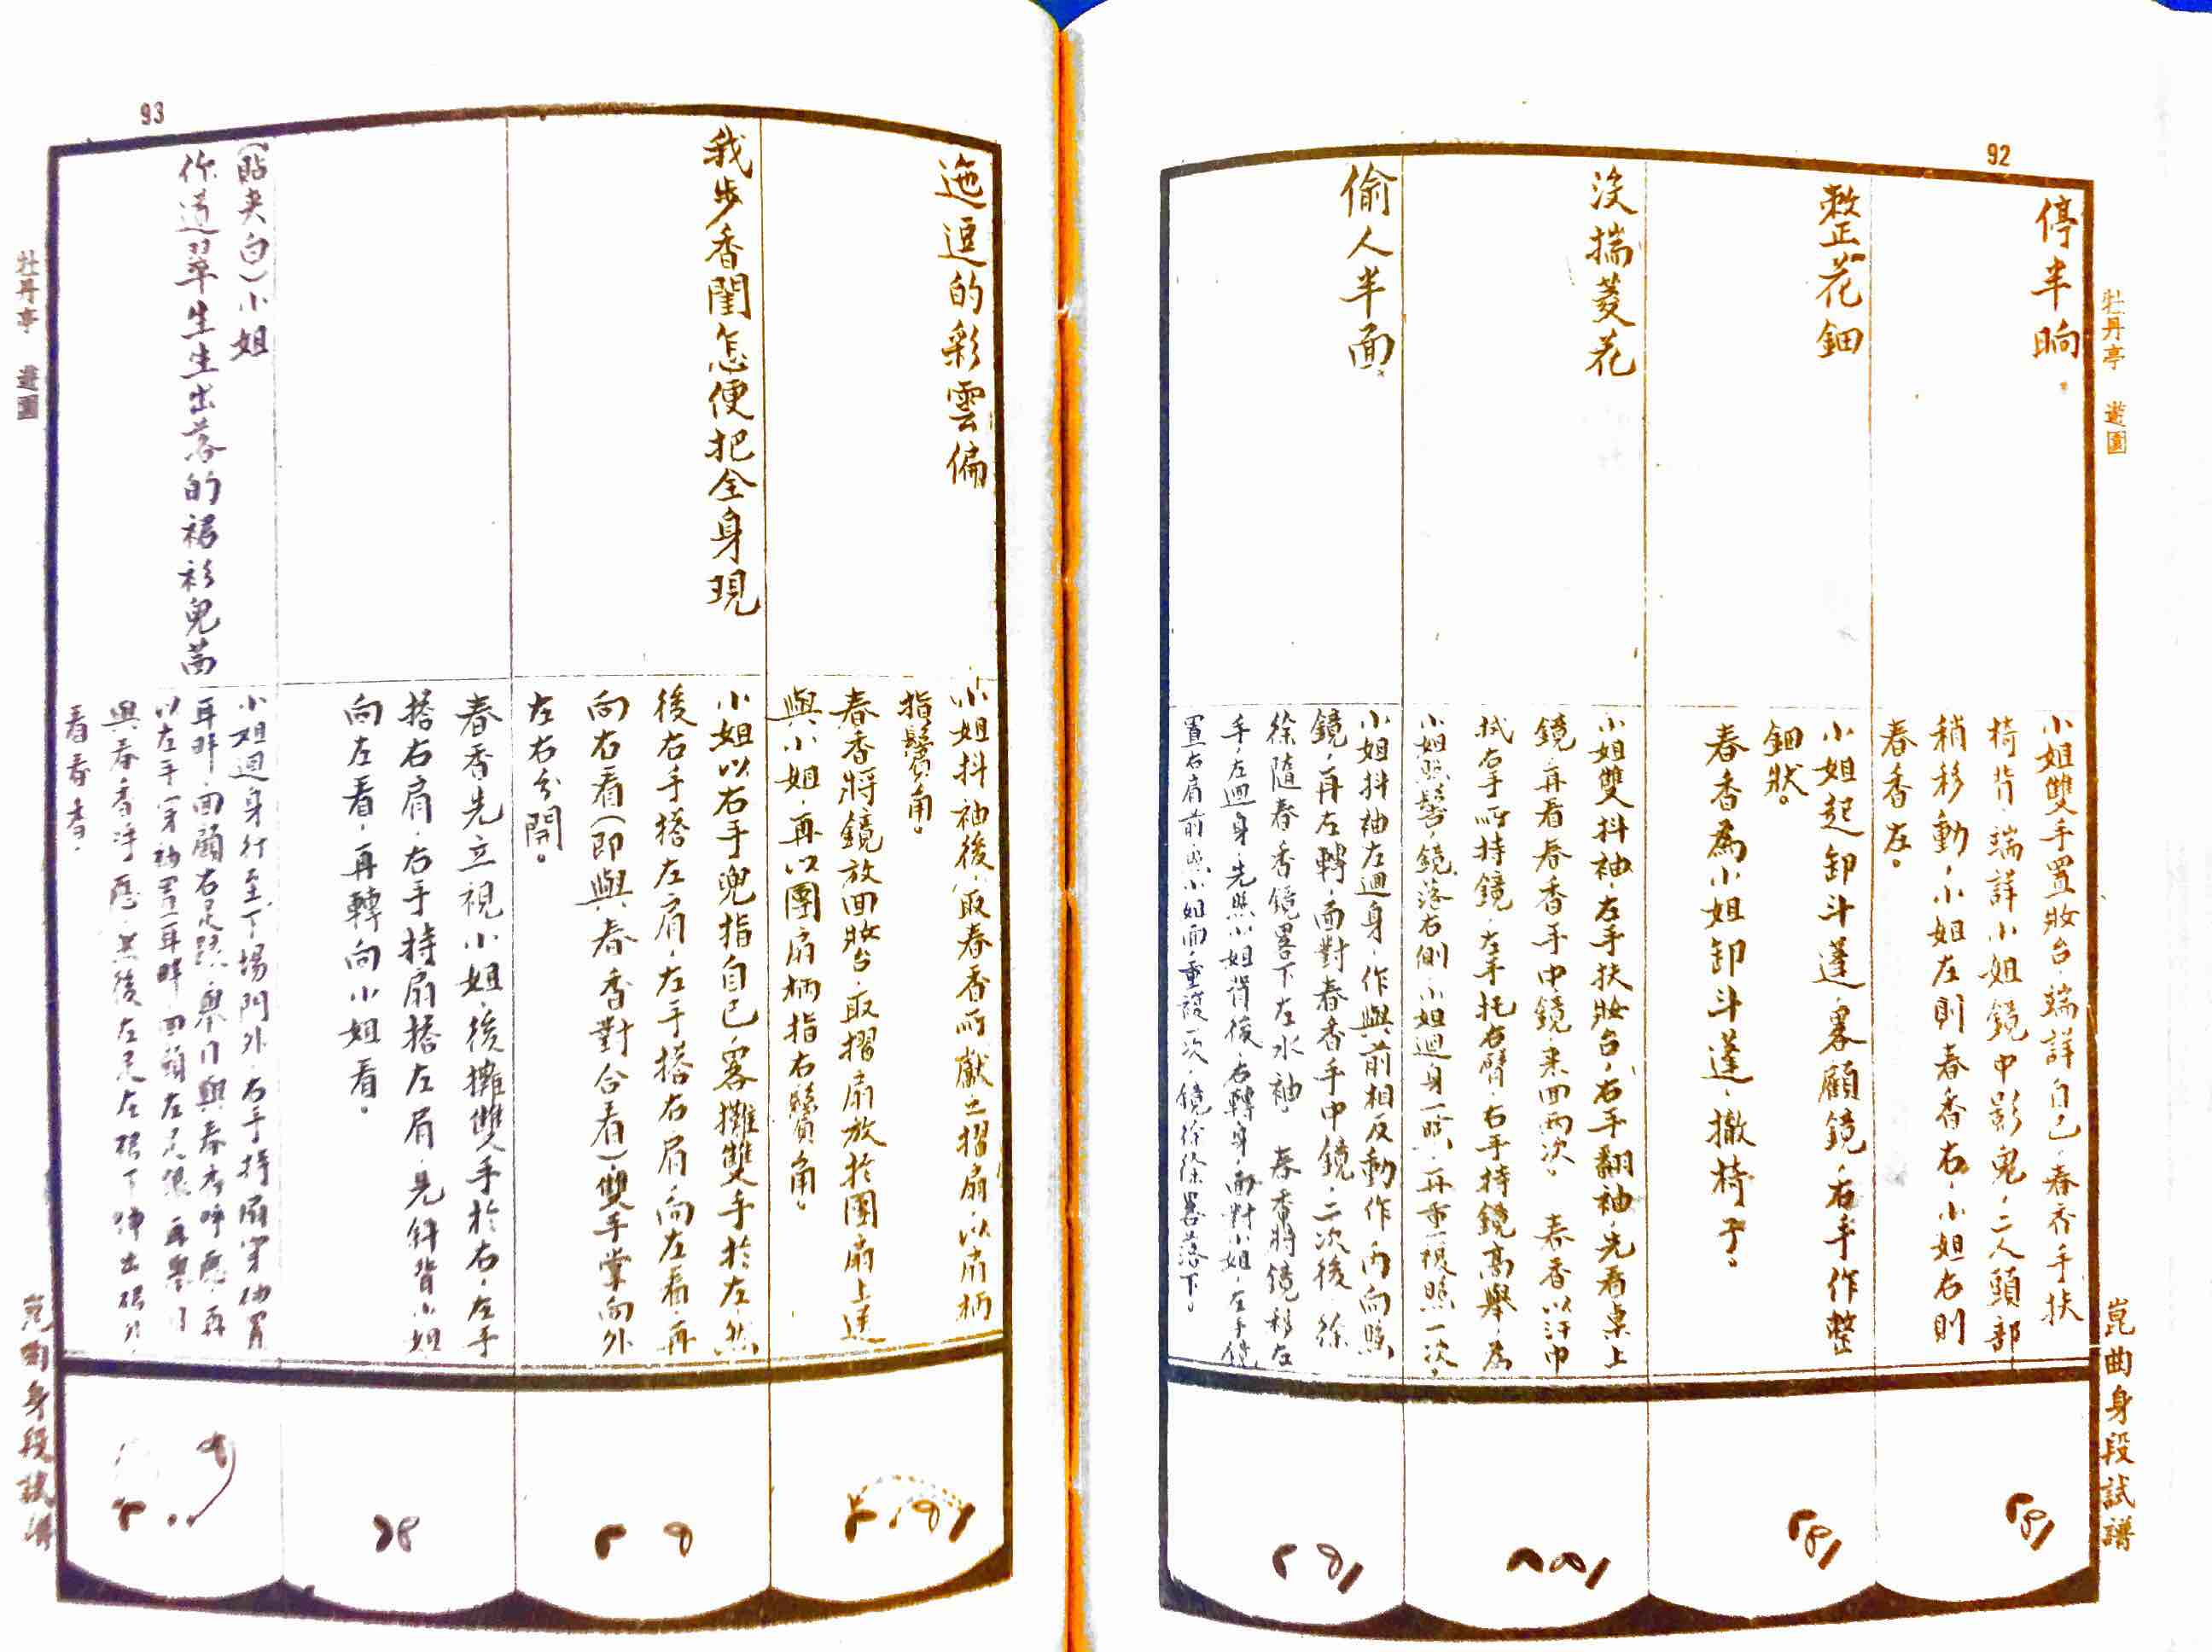 92
牡丹亭 遊園
崑曲身段試譜
停半晌。
小姐雙手置妝台，端詳自己，春香手扶
椅背，端詳小姐鏡中影兒，二人頭部
稍移動，小姐左則春香右，小姐右則
春香左。
整花鈿
小姐起卸斗蓬，畧顧鏡，右手作整
鈿狀。
春香為小姐卸斗蓬，撤椅子。
沒揣菱花
小姐雙抖袖，左手扶妝台，右手翻袖，先看桌上
鏡，再看春香手中鏡，来回兩次。 春香以汗巾
拭右手所持鏡，左手托右臂，右手持鏡高舉，為
小姐照髻，鏡落右側，小姐迴身一照，再重複照一次，
偷人半面，
小姐抖袖左迴身，作與前相反動作，內向照
鏡，再左轉，面對春香手中鏡，二次後，徐
徐隨春香鏡畧下左水袖。 春香將鏡移左
手，左迴身，先照小姐背後，右轉身，面對小姐，左手
置右肩前，照小姐面，重複一次，鏡徐徐畧落下。
93
牡丹亭 遊園
崑曲身段試譜
迤逗的彩雲偏
小姐抖袖後，取春香所獻之摺扇，以扇柄
指鬢角。
春香將鏡放回妝台，取摺扇放於團扇上遞
與小姐，再以團扇柄指右鬢角。
我步香閨怎便把全身現
小姐以右手兜指自己，畧攤雙手於左，然
後右手搭左肩，左手搭右肩，向左看，再
向右看（即與春香對合看）雙手掌向外
左右分開。
春香先立視小姐，後攤雙手於右，左手
搭右肩，右手持扇搭左肩，見斜背小姐
向左看，再轉向小姐看。
（貼夾白）小姐
你道翠生生出落的裙衫兒茜
小姐迴身行至下場門外，右手持扇穿袖置
耳畔，面顧右足，與春香呼應，再
以左手穿袖置耳畔，回頭左足
與春香呼應，然後左足左
看春香。